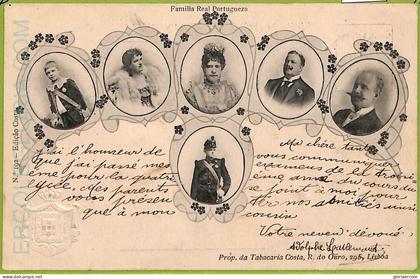 Familia Real Portugueza
N.º 192 — Edição Costa
J'ai l'honneur de
que j'ai passé mes
ème pour la quatri
cycée, Mes parents
vous présen
que à mon
Ma chère tante
vous communiquer
examens de la troisi
ème année du cours du
se joint à moi pour
ter nos amitiés ainsi
cousin
Votre neveu dévoué,
Adolphe
Prop. da Tabacaria Costa, R. do Ouro, 295, Lisboa